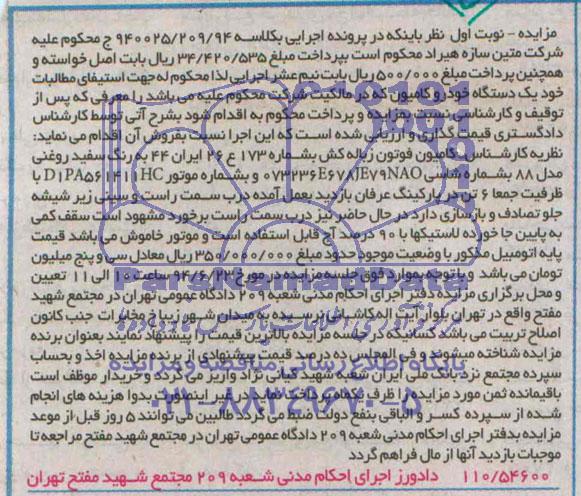 مزایده - نوبت اول نظر باینکه در پرونده اجرایی بکلاسه ۹۴۰۰۲۵/۲۰۹/۹۴ ج محکوم علیه
شرکت متین سازه هیراد محکوم است بپرداخت مبلغ ۳۴/۴۲۰/۵۳۵ ریال بابت اصل خواسته و
همچنین پرداخت مبلغ ۵۰۰/۰۰۰ ریال بابت نیم عشر اجرایی لذا محکوم له جهت استیفای مطالبات
خود یک دستگاه خودرو کامیون که در مالکیت شرکت محکوم علیه می باشد را معرفی که پس از
توقیف و کارشناسی نسبت بمزایده و پرداخت محکوم به اقدام شود بشرح آتی توسط کارشناس
دادگستری قیمت گذاری و ارزیابی شده است که این اجرا نسبت بفروش آن اقدام می نماید:
نظریه کارشناس: کامیون فوتون زباله کش بشماره ۱۷۳ ع ۲۶ ایران ۴۴ به رنگ سفید روغنی
مدل ۸۸ بشماره شاسی ۰۷۳۲۳۶E۶۷۸JE۷۹NAO و بشماره موتور D۱PA۵۶۱۴۱۱HC با
ظرفیت جمعا ۶ تن در پارکینگ عرفان بازدید بعمل آمده درب سمت راست و سینی زیر شیشه
جلو تصادف و بازسازی دارد در حال حاضر نیز درب سمت راست برخورد مشهود است سقف کمی
به پایین جا خورده لاستیکها با ۹۰ درصد آج قابل استفاده است و موتور خاموش می باشد قیمت
پایه اتومبیل مذکور با وضعیت موجود حدود مبلغ ۳۵۰/۰۰۰/۰۰۰ ریال معادل سی و پنج میلیون
تومان می باشد و با توجه بموارد فوق جلسه مزایده در مورخ ۹۴/۶/۲۳ ساعت ۱۰ الی ۱۱ تعیین
و محل برگزاری مزایده دفتر اجرای احکام مدنی شعبه ۲۰۹ دادگاه عمومی تهران در مجتمع شهید
مفتح واقع در تهران بلوار آیت اله کاشانی نرسیده به میدان شهر زیبا خ مخابرات جنب کانون
اصلاح تربیت می باشد کسانیکه در جلسه مزایده بالاترین قیمت را پیشنهاد نمایند بعنوان برنده
مزایده شناخته میشوند و فی المجلس ده درصد قیمت پیشنهادی از برنده مزایده اخذ و بحساب
سپرده مجتمع نزد بانک ملی ایران شعبه شهید کیانی نژاد واریز می گردد و خریدار موظف است
باقیمانده ثمن مورد مزایده را ظرف یکماه پرداخت نماید در غیر اینصورت بدوا هزینه های انجام
شده از سپرده کسر و الباقی بنفع دولت ضبط می گردد طالبین می توانند ۵ روز قبل از موعد
مزایده بدفتر اجرای احکام مدنی شعبه ۲۰۹ دادگاه عمومی تهران در مجتمع شهید مفتح مراجعه تا
موجبات بازدید آنها از مال فراهم گردد
۱۱۰/۵۴۶۰۰ دادورز اجرای احکام مدنی شعبه ۲۰۹ مجتمع شهید مفتح تهران
ParsNamadData
پایگاه اطلاع رسانی مناقصه و مزایده
۰۲۱-۸۸۳۴۹۶۷۰-۵